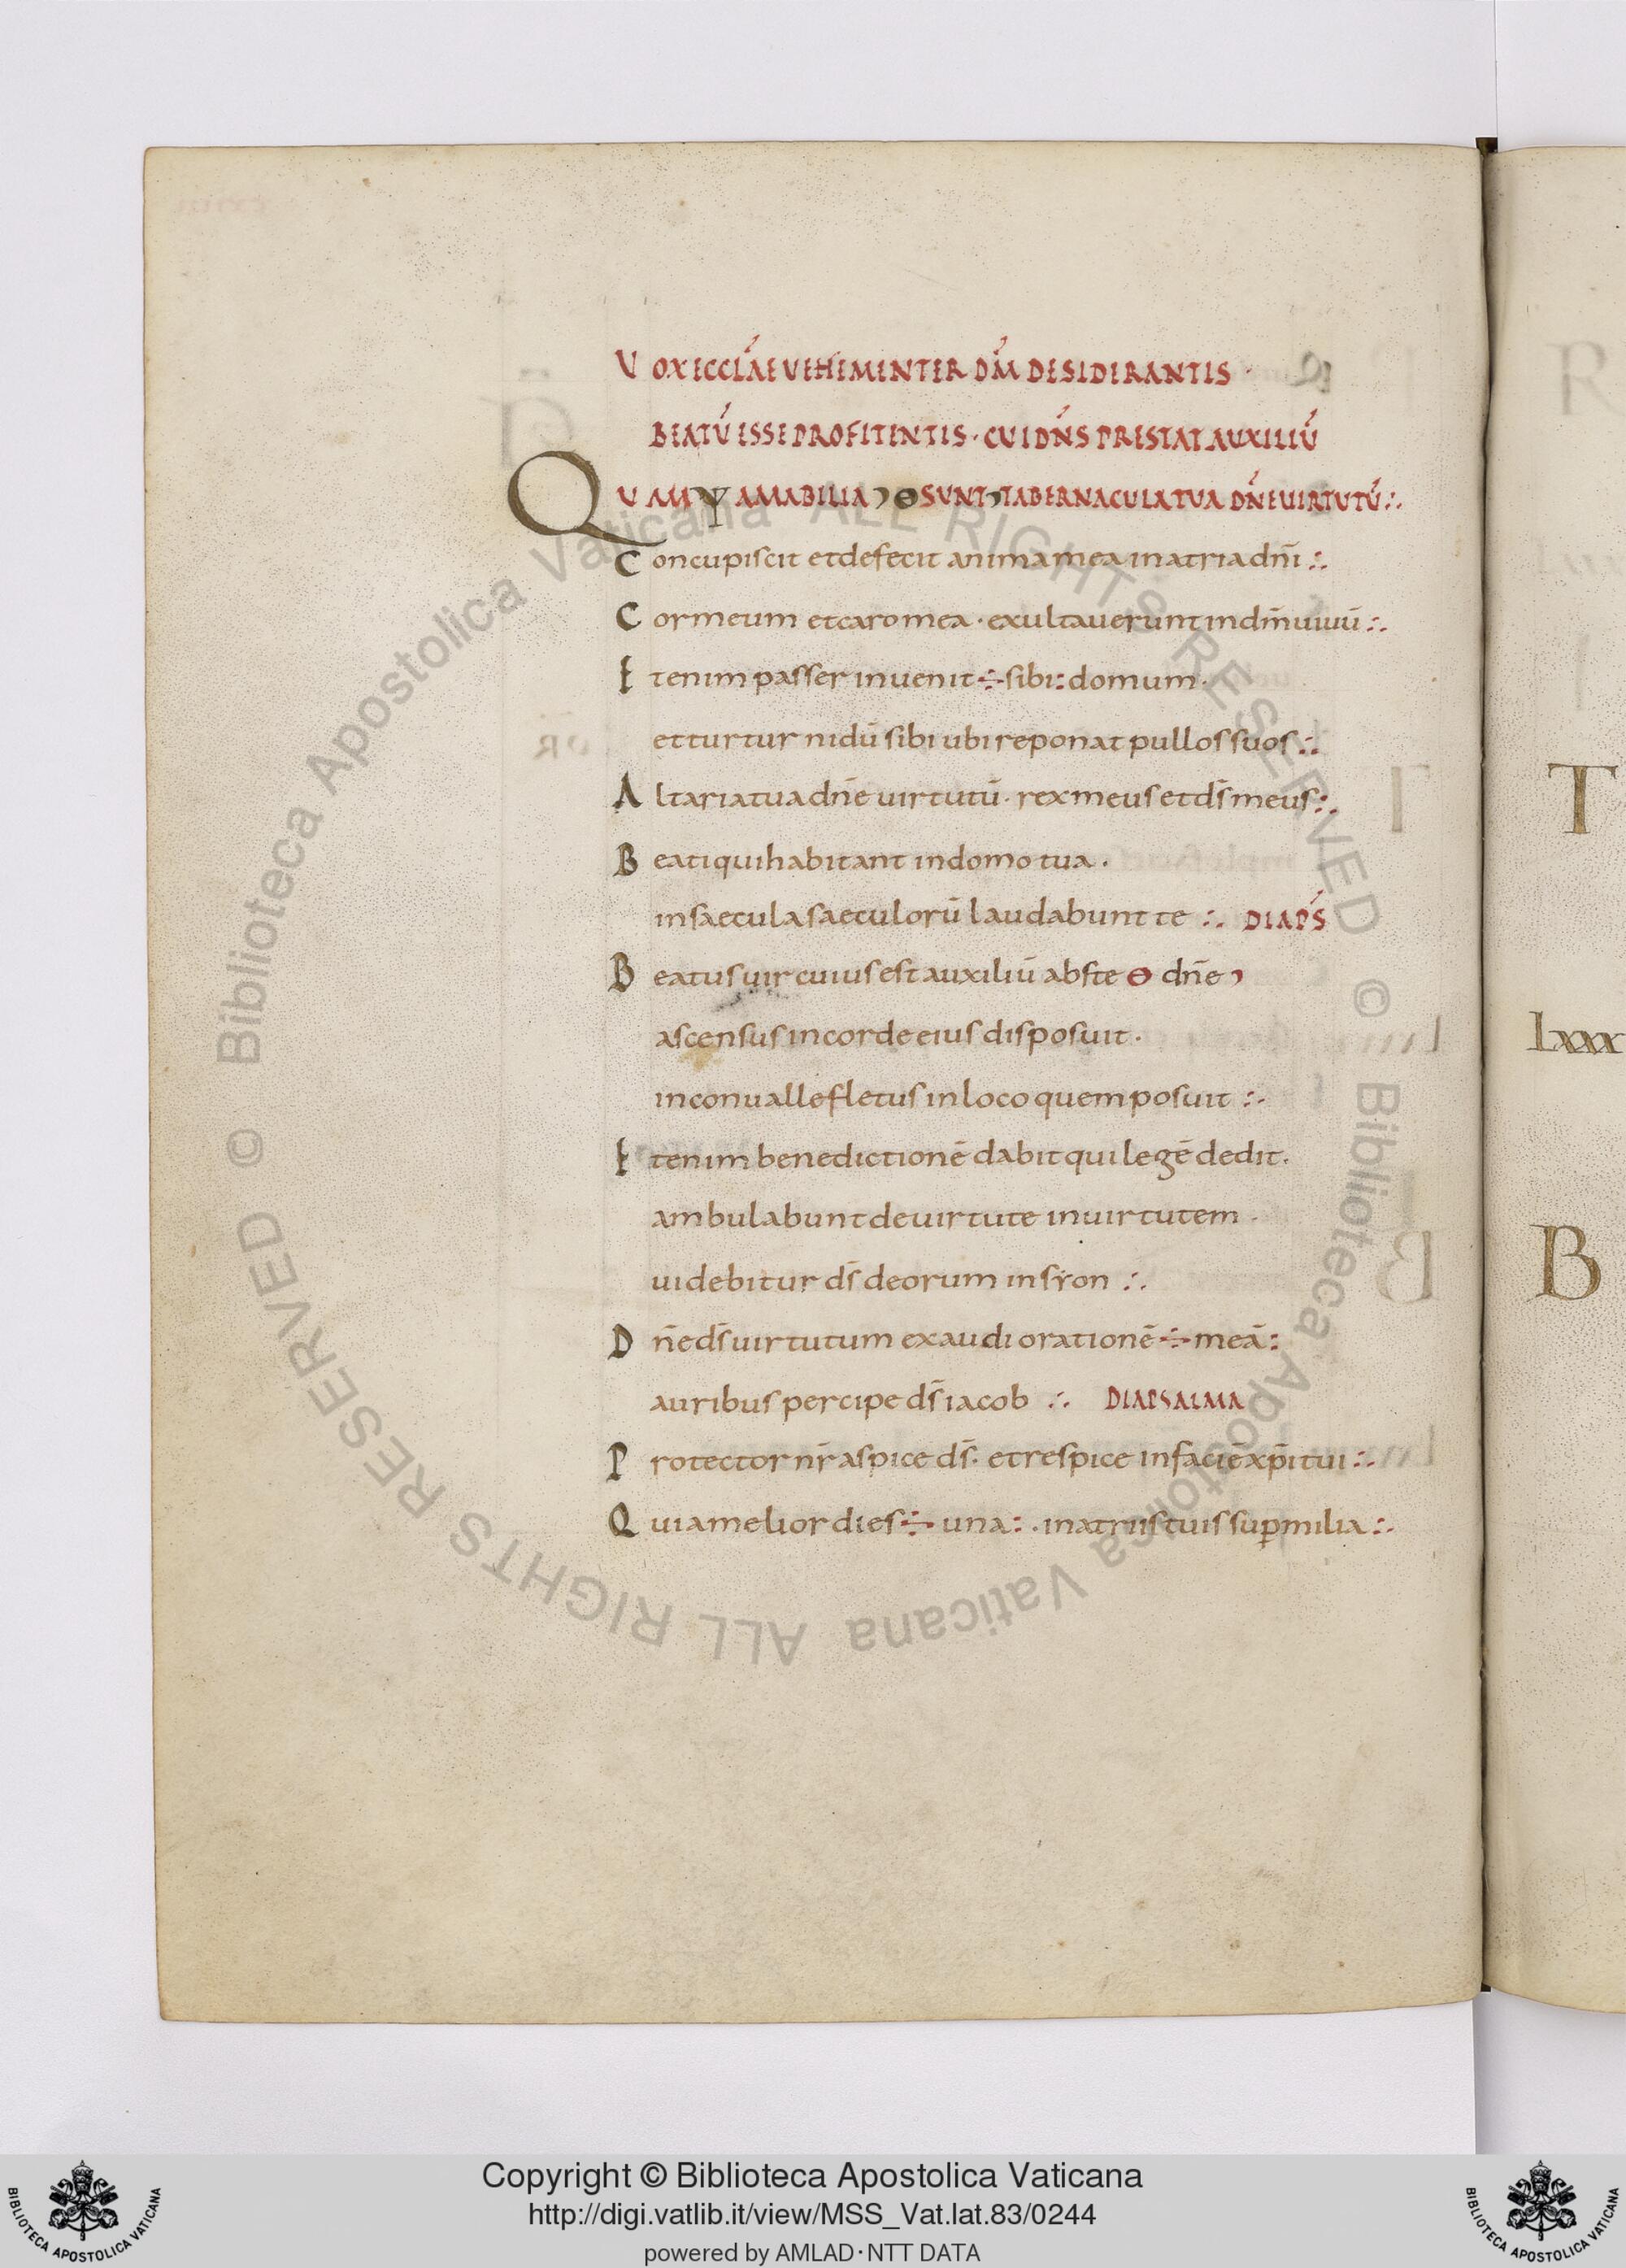 VOX ECCLÁE VEHEMENTER DM̄ DESIDERANTIS ·
BEATŪ ESSE PROFITENTIS · CUI DN̄S PRESTAT AUXILIŪ
QUAM Ψ AMABILIA ϶ Θ SUNT ϶ TABERNACULA TUA DN̄E UIRTUTŪ :.
Concupiscit et defecit anima mea in atria dn̄i :.
Cor meum et caro mea · exultauerunt in dm̄ uiuū :.
Etenim passer inuenit ÷ sibi : domum ·
et turtur nidū sibi ubi reponat pullos suos :.
Altaria tua dn̄e uirtutū · rex meus et ds̄ meus :.
Beati qui habitant in domo tua .
in saecula saeculorū laudabunt te :. DIAPS̄
Beatus uir cuius est auxiliū abs te Θ dn̄e ϶
ascensus in corde eius disposuit ·
in conualle fletus in loco quem posuit :.
Etenim benedictionē dabit qui legē dedit .
ambulabunt de uirtute in uirtutem ·
uidebitur ds̄ deorum in syon :.
Dn̄e ds̄ uirtutum exaudi orationē ÷ meā :
auribus percipe ds̄ iacob :. DIAPSALMA
Protector nr̄ aspice ds̄ · et respice in faciē xp̄i tui :.
Quia melior dies ÷ una : · in atriis tuis sup̄ milia :.
R
T
lxxx
B
© Biblioteca Apostolica Vaticana ALL RIGHTS RESERVED © Biblioteca Apostolica Vaticana ALL RIGHTS RESERVED
BIBLIOTECA APOSTOLICA VATICANA
Copyright © Biblioteca Apostolica Vaticana
http://digi.vatlib.it/view/MSS_Vat.lat.83/0244
powered by AMLAD·NTT DATA
BIBLIOTECA APOSTOLICA VATICANA